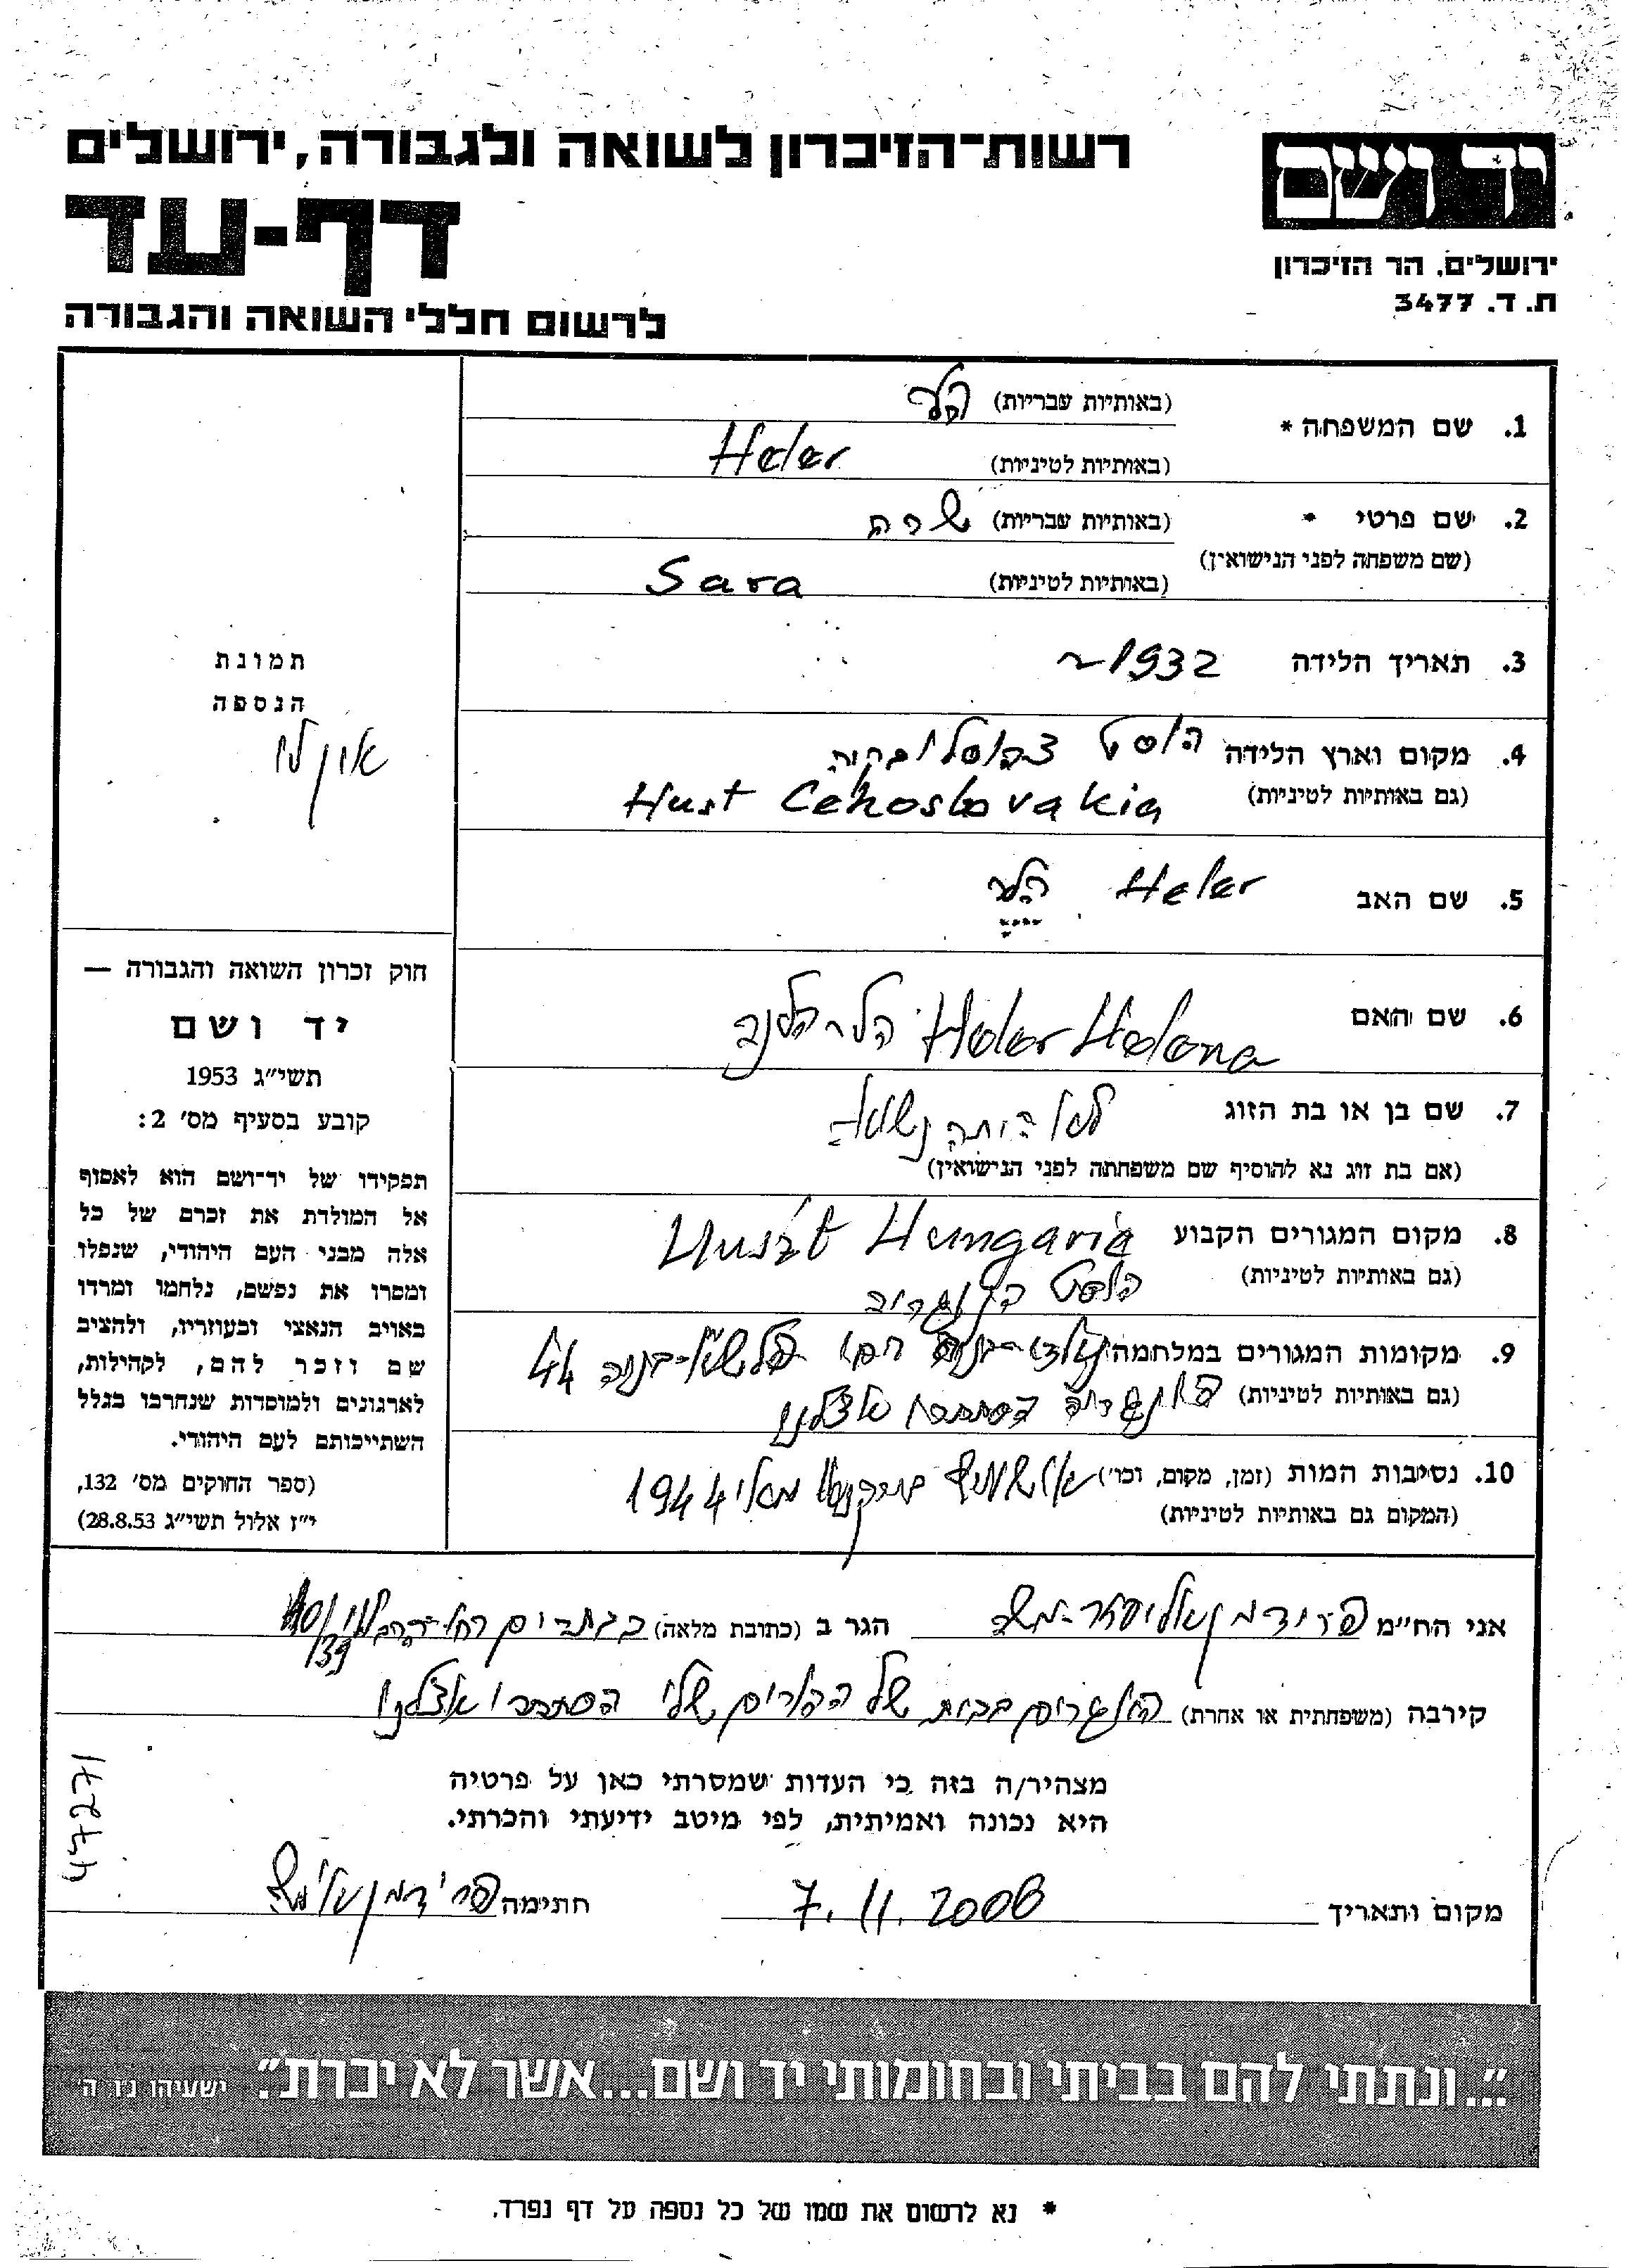 רשות-הזיכרון לשואה ולגבורה, ירושלים
דף-עד
לרשום חללי השואה והגבורה
יד ושם
ירושלים, הר הזיכרון
ת. ד. 3477
1. שם המשפחה * (באותיות עבריות) הלר
(באותיות לטיניות) Heler
2. שם פרטי * (באותיות עבריות) שרה
(שם משפחה לפני הנישואין)
(באותיות לטיניות) Sara
3. תאריך הלידה ~1932
4. מקום וארץ הלידה הוסט צכוסלובקיה
(גם באותיות לטיניות) Hust Cehoslovakia
5. שם האב Heler הלר
6. שם האם Heler Helena הלר הלנה
7. שם בן או בת הזוג לא היתה נשואה
(אם בת זוג נא להוסיף שם משפחתה לפני הנישואין)
8. מקום המגורים הקבוע Huszt Hungaria
(גם באותיות לטיניות) הוסט הונגריה
9. מקומות המגורים במלחמה 44
(גם באותיות לטיניות) אצלנו
10. נסיבות המות (זמן, מקום, וכו') אושוויץ בירקנאו מאי 1944
(המקום גם באותיות לטיניות)
תמונת
הנספה
אין לי
חוק זכרון השואה והגבורה —
יד ושם
תשי״ג 1953
קובע בסעיף מס׳ 2:
תפקידו של יד-ושם הוא לאסוף
אל המולדת את זכרם של כל
אלה מבני העם היהודי, שנפלו
ומסרו את נפשם, נלחמו ומרדו
באויב הנאצי ובעוזריו, ולהציב
שם וזכר להם, לקהילות,
לארגונים ולמוסדות שנחרבו בגלל
השתייכותם לעם היהודי.
(ספר החוקים מס׳ 132,
י״ז אלול תשי״ג 28.8.53)
אני הח״מ פרידמן אליעזר-משה הגר ב (כתובת מלאה) 40/
/39
קירבה (משפחתית או אחרת) של ההורים שלי הסתתרו אצלנו
מצהיר/ה בזה כי העדות שמסרתי כאן על פרטיה
היא נכונה ואמיתית, לפי מיטב ידיעתי והכרתי.
מקום ותאריך 7.11.2000 חתימה
״...ונתתי להם בביתי ובחומותי יד ושם...אשר לא יכרת״. ישעיהו נו ה׳
* נא לרשום את שמו של כל נספה על דף נפרד.